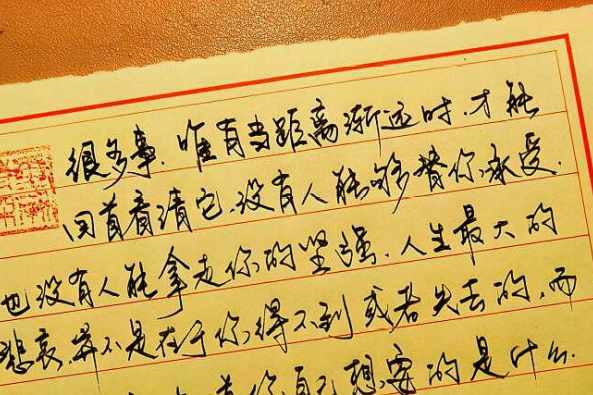 很多事，唯有当距离渐远时，才能
回首看清它，没有人能够替你承受，
也没有人能拿走你的坚强，人生最大的
悲哀，并不是在于你得不到或者失去的，而
你自己想要的是什么